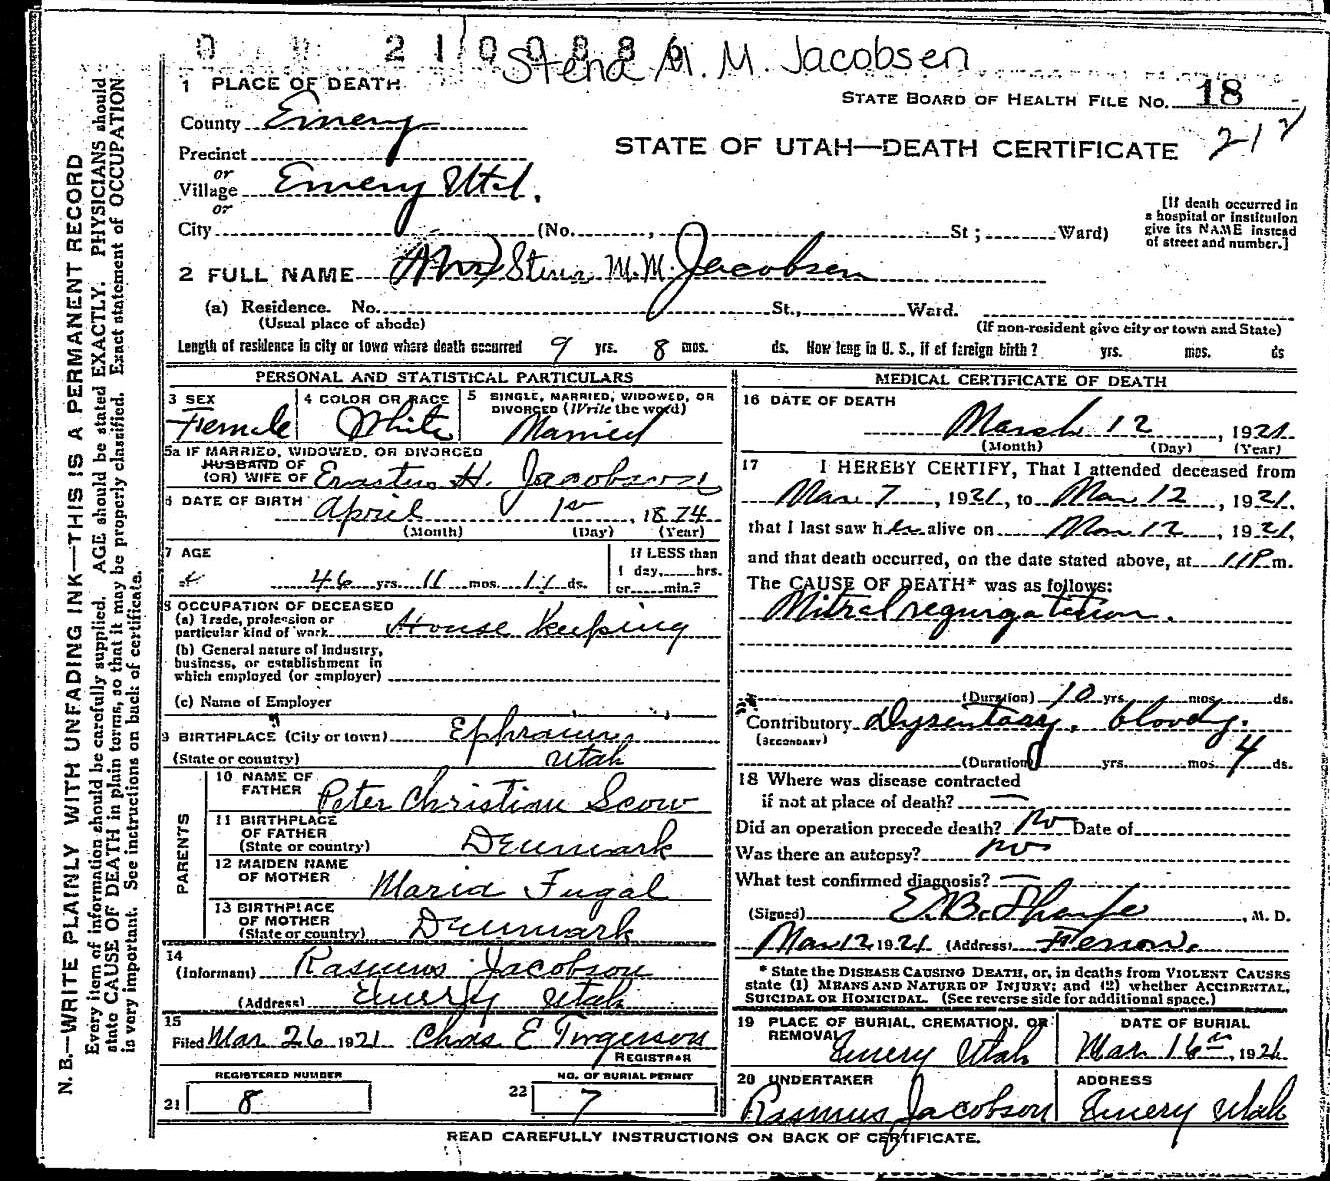 0 2 1 0 0 8 8 6
Stena M. M. Jacobsen
1 PLACE OF DEATH
STATE BOARD OF HEALTH FILE NO. 18
County Emery
212
STATE OF UTAH—DEATH CERTIFICATE
Precinct
or
Village Emery Utah.
or
City (No. , St ; Ward)
[If death occurred in
a hospital or institution
give its NAME instead
of street and number.]
2 FULL NAME (Mrs) Stena M.M. Jacobsen
(a) Residence. No. St., Ward.
(Usual place of abode) (If non-resident give city or town and State)
Length of residence in city or town where death occurred 9 yrs. 8 mos. ds. How long in U. S., if of foreign birth? yrs. mos. ds
PERSONAL AND STATISTICAL PARTICULARS
3 SEX
Female
4 COLOR OR RACE
White
5 SINGLE, MARRIED, WIDOWED, OR
DIVORCED (Write the word)
Married
5a IF MARRIED, WIDOWED, OR DIVORCED
HUSBAND OF
(OR) WIFE OF Erastus H. Jacobson
6 DATE OF BIRTH April 1st, 1874
(Month) (Day) (Year)
7 AGE
46 yrs. 11 mos. 11 ds.
If LESS than
1 day, hrs.
or min.?
8 OCCUPATION OF DECEASED
(a) Trade, profession or
particular kind of work House Keeping
(b) General nature of Industry,
business, or establishment in
which employed (or employer)
(c) Name of Employer
9 BIRTHPLACE (City or town) Ephraim,
(State or country) Utah
PARENTS
10 NAME OF
FATHER Peter Christian Scow
11 BIRTHPLACE
OF FATHER
(State or country) Denmark
12 MAIDEN NAME
OF MOTHER Maria Fugal
13 BIRTHPLACE
OF MOTHER
(State or country) Denmark
14
(Informant) Rasmus Jacobson
(Address) Emery Utah
15
Filed Mar 26 1921 Chas E
REGISTRAR
REGISTERED NUMBER
21 8
NO. OF BURIAL PERMIT
22 7
MEDICAL CERTIFICATE OF DEATH
16 DATE OF DEATH
March 12, 1921
(Month) (Day) (Year)
17 I HEREBY CERTIFY, That I attended deceased from
Mar 7, 1921, to Mar 12, 1921,
that I last saw her alive on Mar 12, 1921,
and that death occurred, on the date stated above, at 11P m.
The CAUSE OF DEATH* was as follows:
Mitral regurgatation.
(Duration) 10 yrs. mos. ds.
Contributory Dysentary, bloody.
(SECONDARY)
(Duration) yrs. mos. 4 ds.
18 Where was disease contracted
if not at place of death? —
Did an operation precede death? No Date of
Was there an autopsy? no
What test confirmed diagnosis? —
(Signed) E.B. Sharpe, M. D.
Mar 12 1921 (Address) Ferron.
* State the DISEASE CAUSING DEATH, or, in deaths from VIOLENT CAUSES
state (1) MEANS AND NATURE OF INJURY; and (2) whether ACCIDENTAL,
SUICIDAL OR HOMICIDAL. (See reverse side for additional space.)
19 PLACE OF BURIAL, CREMATION, OR
REMOVAL
Emery Utah
DATE OF BURIAL
Mar 16th, 1921
20 UNDERTAKER
Rasmus Jacobson
ADDRESS
Emery Utah
READ CAREFULLY INSTRUCTIONS ON BACK OF CERTIFICATE.
N. B.—WRITE PLAINLY WITH UNFADING INK—THIS IS A PERMANENT RECORD
Every item of information should be carefully supplied. AGE should be stated EXACTLY. PHYSICIANS should
state CAUSE OF DEATH in plain terms, so that it may be properly classified. Exact statement of OCCUPATION
is very important. See instructions on back of certificate.